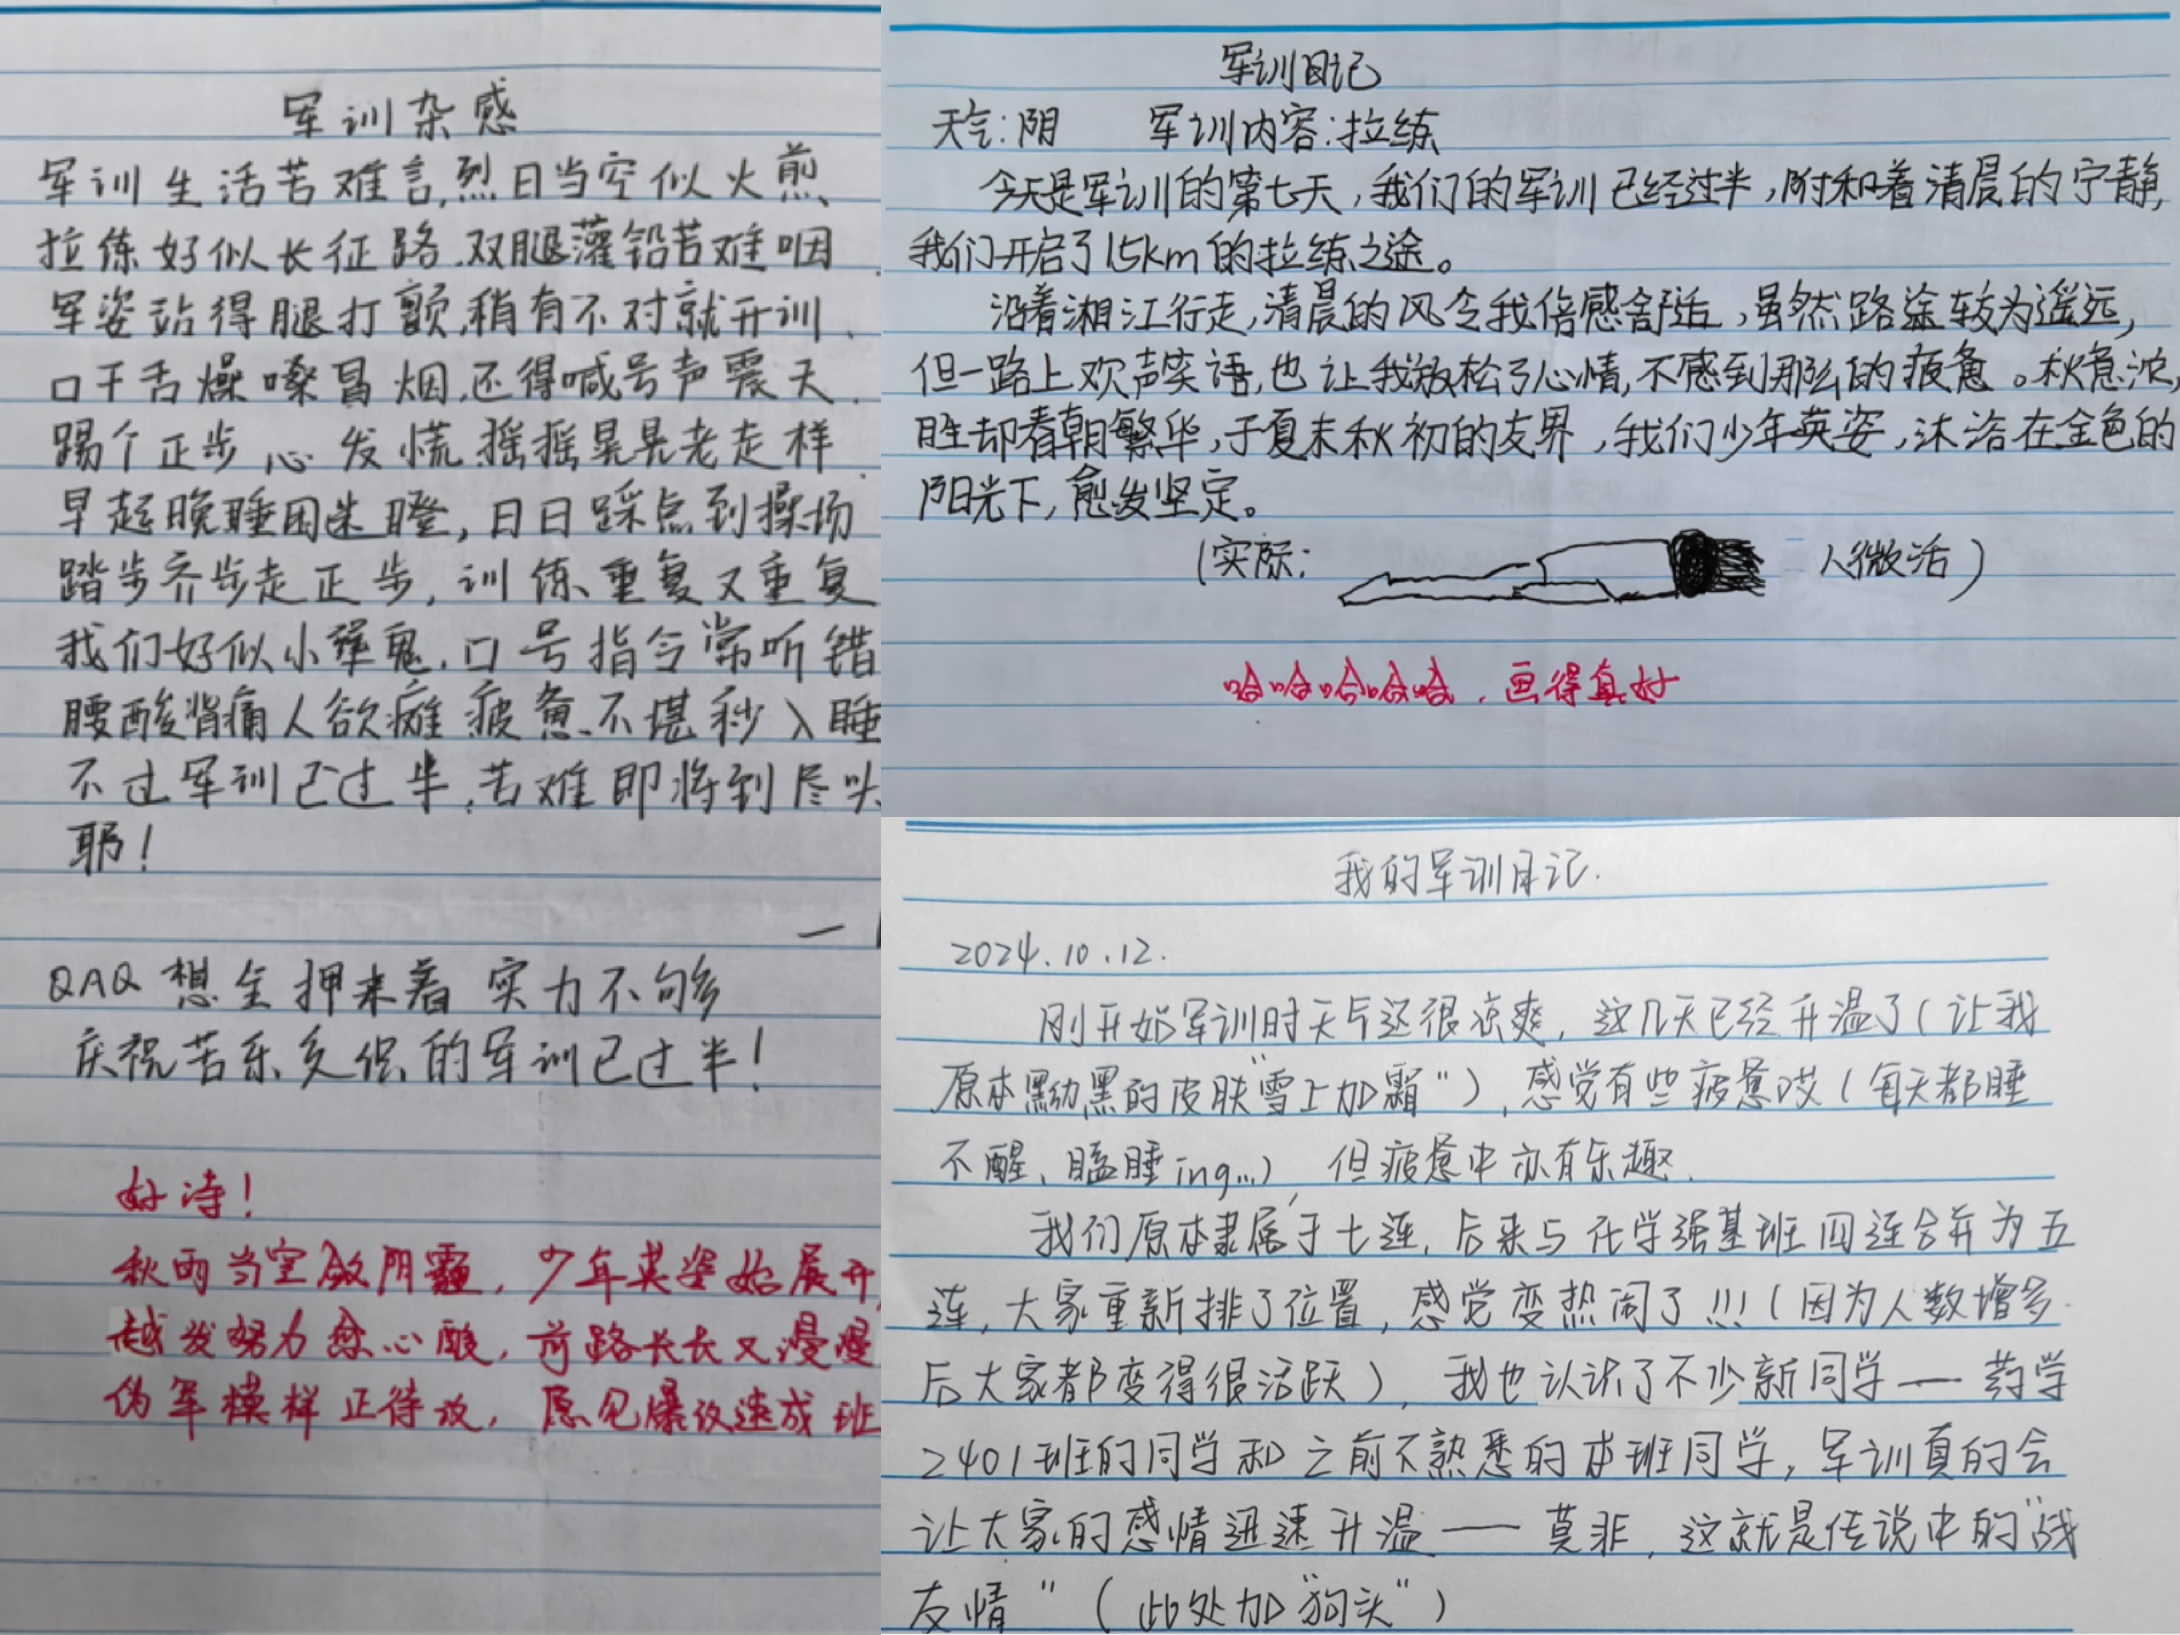 军训杂感
军训生活苦难言,烈日当空似火煎、
拉练好似长征路.双腿灌铅苦难咽.
军姿站得腿打颤,稍有不对就开训.
口干舌燥嗓冒烟.还得喊号声震天.
踢个正步心发慌.摇摇晃晃老走样.
早起晚睡困迷瞪,日日踩点到操场
踏步齐步走正步,训练重复又重复
我们好似小犟鬼.口号指令常听错
腰酸背痛人欲瘫疲惫不堪秒入睡
不过军训已过半.苦难即将到尽头
耶!
QAQ想全押来着实力不够
庆祝苦乐交织的军训已过半!
好诗!
秋雨当空散阴霾,少年英姿始展开,
越发努力愈心酸,前路长长又漫漫
伪军模样正待改,愿见爆改速成班
军训日记
天气:阴 军训内容:拉练
今天是军训的第七天,我们的军训已经过半,附和着清晨的宁静,
我们开启了15km的拉练之途。
沿着湘江行走,清晨的风令我倍感舒适,虽然路途较为遥远,
但一路上欢声笑语,也让我放松了心情,不感到那么的疲惫。秋意浓,
胜却春朝繁华,于夏末秋初的交界,我们少年英姿,沐浴在金色的
阳光下,愈发坚定。
(实际: 人微活)
哈哈哈哈哈,画得真好
我的军训日记.
2024.10.12.
刚开始军训时天气还很凉爽,这几天已经升温了(让我
原本黝黑的皮肤“雪上加霜”),感觉有些疲惫哎(每天都睡
不醒、瞌睡ing...),但疲惫中亦有乐趣.
我们原本隶属于七连,后来与化学强基班四连合并为五
连,大家重新排了位置,感觉变热闹了!!!(因为人数增多
后大家都变得很活跃),我也认识了不少新同学——药学
2401班的同学和之前不熟悉的本班同学,军训真的会
让大家的感情迅速升温——莫非,这就是传说中的“战
友情”(此处加“狗头”)